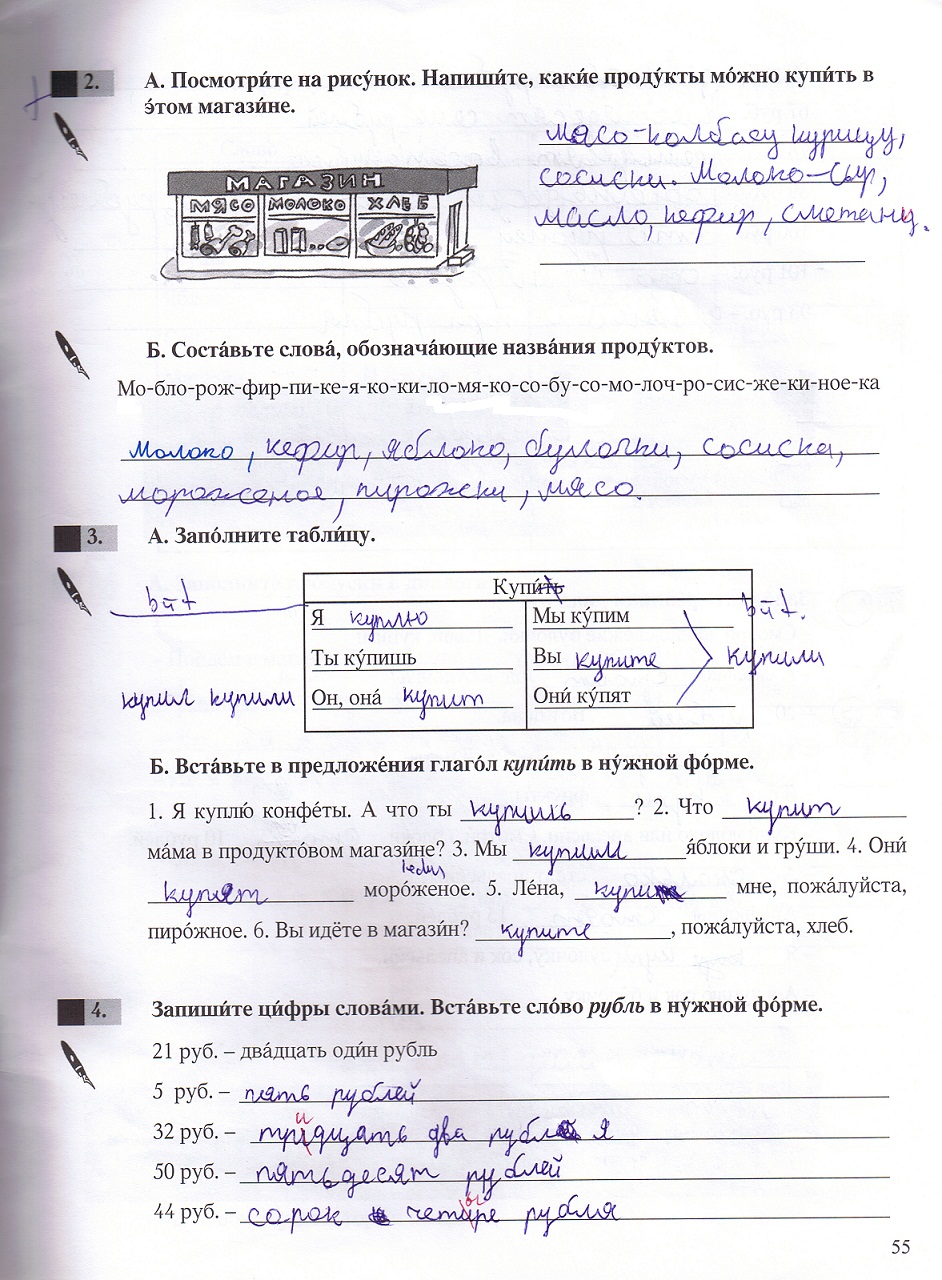 2. А. Посмотри́те на рису́нок. Напиши́те, каки́е проду́кты мо́жно купи́ть в
э́том магази́не.
мясо-колбасу курицу,
сосиски. Молоко-сыр,
масло, кефир, сметану.
МАГАЗИН
МЯСО МОЛОКО ХЛЕБ
Б. Соста́вьте слова́, обознача́ющие назва́ния проду́ктов.
Мо-бло-рож-фир-пи-ке-я-ко-ки-ло-мя-ко-со-бу-со-мо-лоч-ро-сис-же-ки-ное-ка
Молоко, кефир, яблоко, булочки, сосиска,
мороженое, пирожки, мясо.
3. А. Запо́лните табли́цу.
Купи́ть
Я куплю Мы ку́пим
Ты ку́пишь Вы купите купили
купил купили Он, она́ купит Они́ ку́пят
Б. Вста́вьте в предложе́ния глаго́л купи́ть в ну́жной фо́рме.
1. Я куплю́ конфе́ты. А что ты купишь ? 2. Что купит
ма́ма в продукто́вом магази́не? 3. Мы купим я́блоки и гру́ши. 4. Они́
купят моро́женое. 5. Ле́на, купи мне, пожа́луйста,
пиро́жное. 6. Вы идёте в магази́н? купите, пожа́луйста, хлеб.
4. Запиши́те ци́фры слова́ми. Вста́вьте сло́во рубль в ну́жной фо́рме.
21 руб. – два́дцать оди́н рубль
5 руб. – пять рублей
32 руб. – тридцать два рубля
50 руб. – пятьдесят рублей
44 руб. – сорок четыре рубля
55